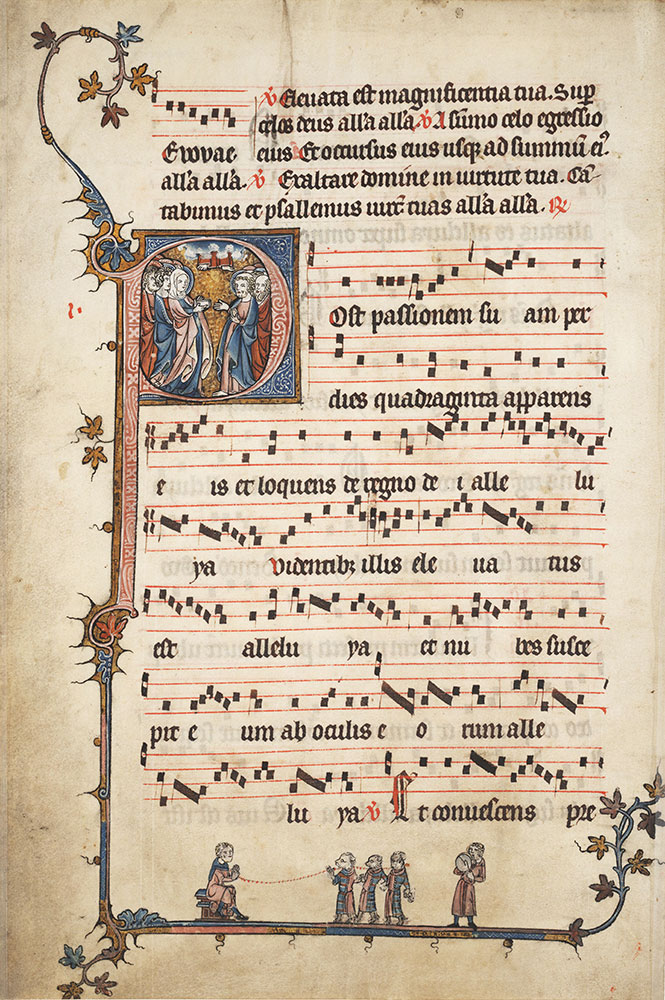 ℣ Eleuata est magnificentia tua. Sup̄
celos deus alł'a alł'a ℣ A sūmo celo egressio
Euouae eius ℟ Et occursus eius usq; ad summū ei9.
alł'a alł'a. ℣ Exaltare domine in uirtute tua. Cā
tabimus et psallemus uirt̄ tuas alł'a alł'a. ℟
Ost passionem su am per
dies quadraginta apparens
e is et loquens de regno de i alle lu
ya Videntibȝ illis ele ua tus
est allelu ya et nu bes susce
pit e um ab oculis e o rum alle
lu ya ℣ Et conuescens pre